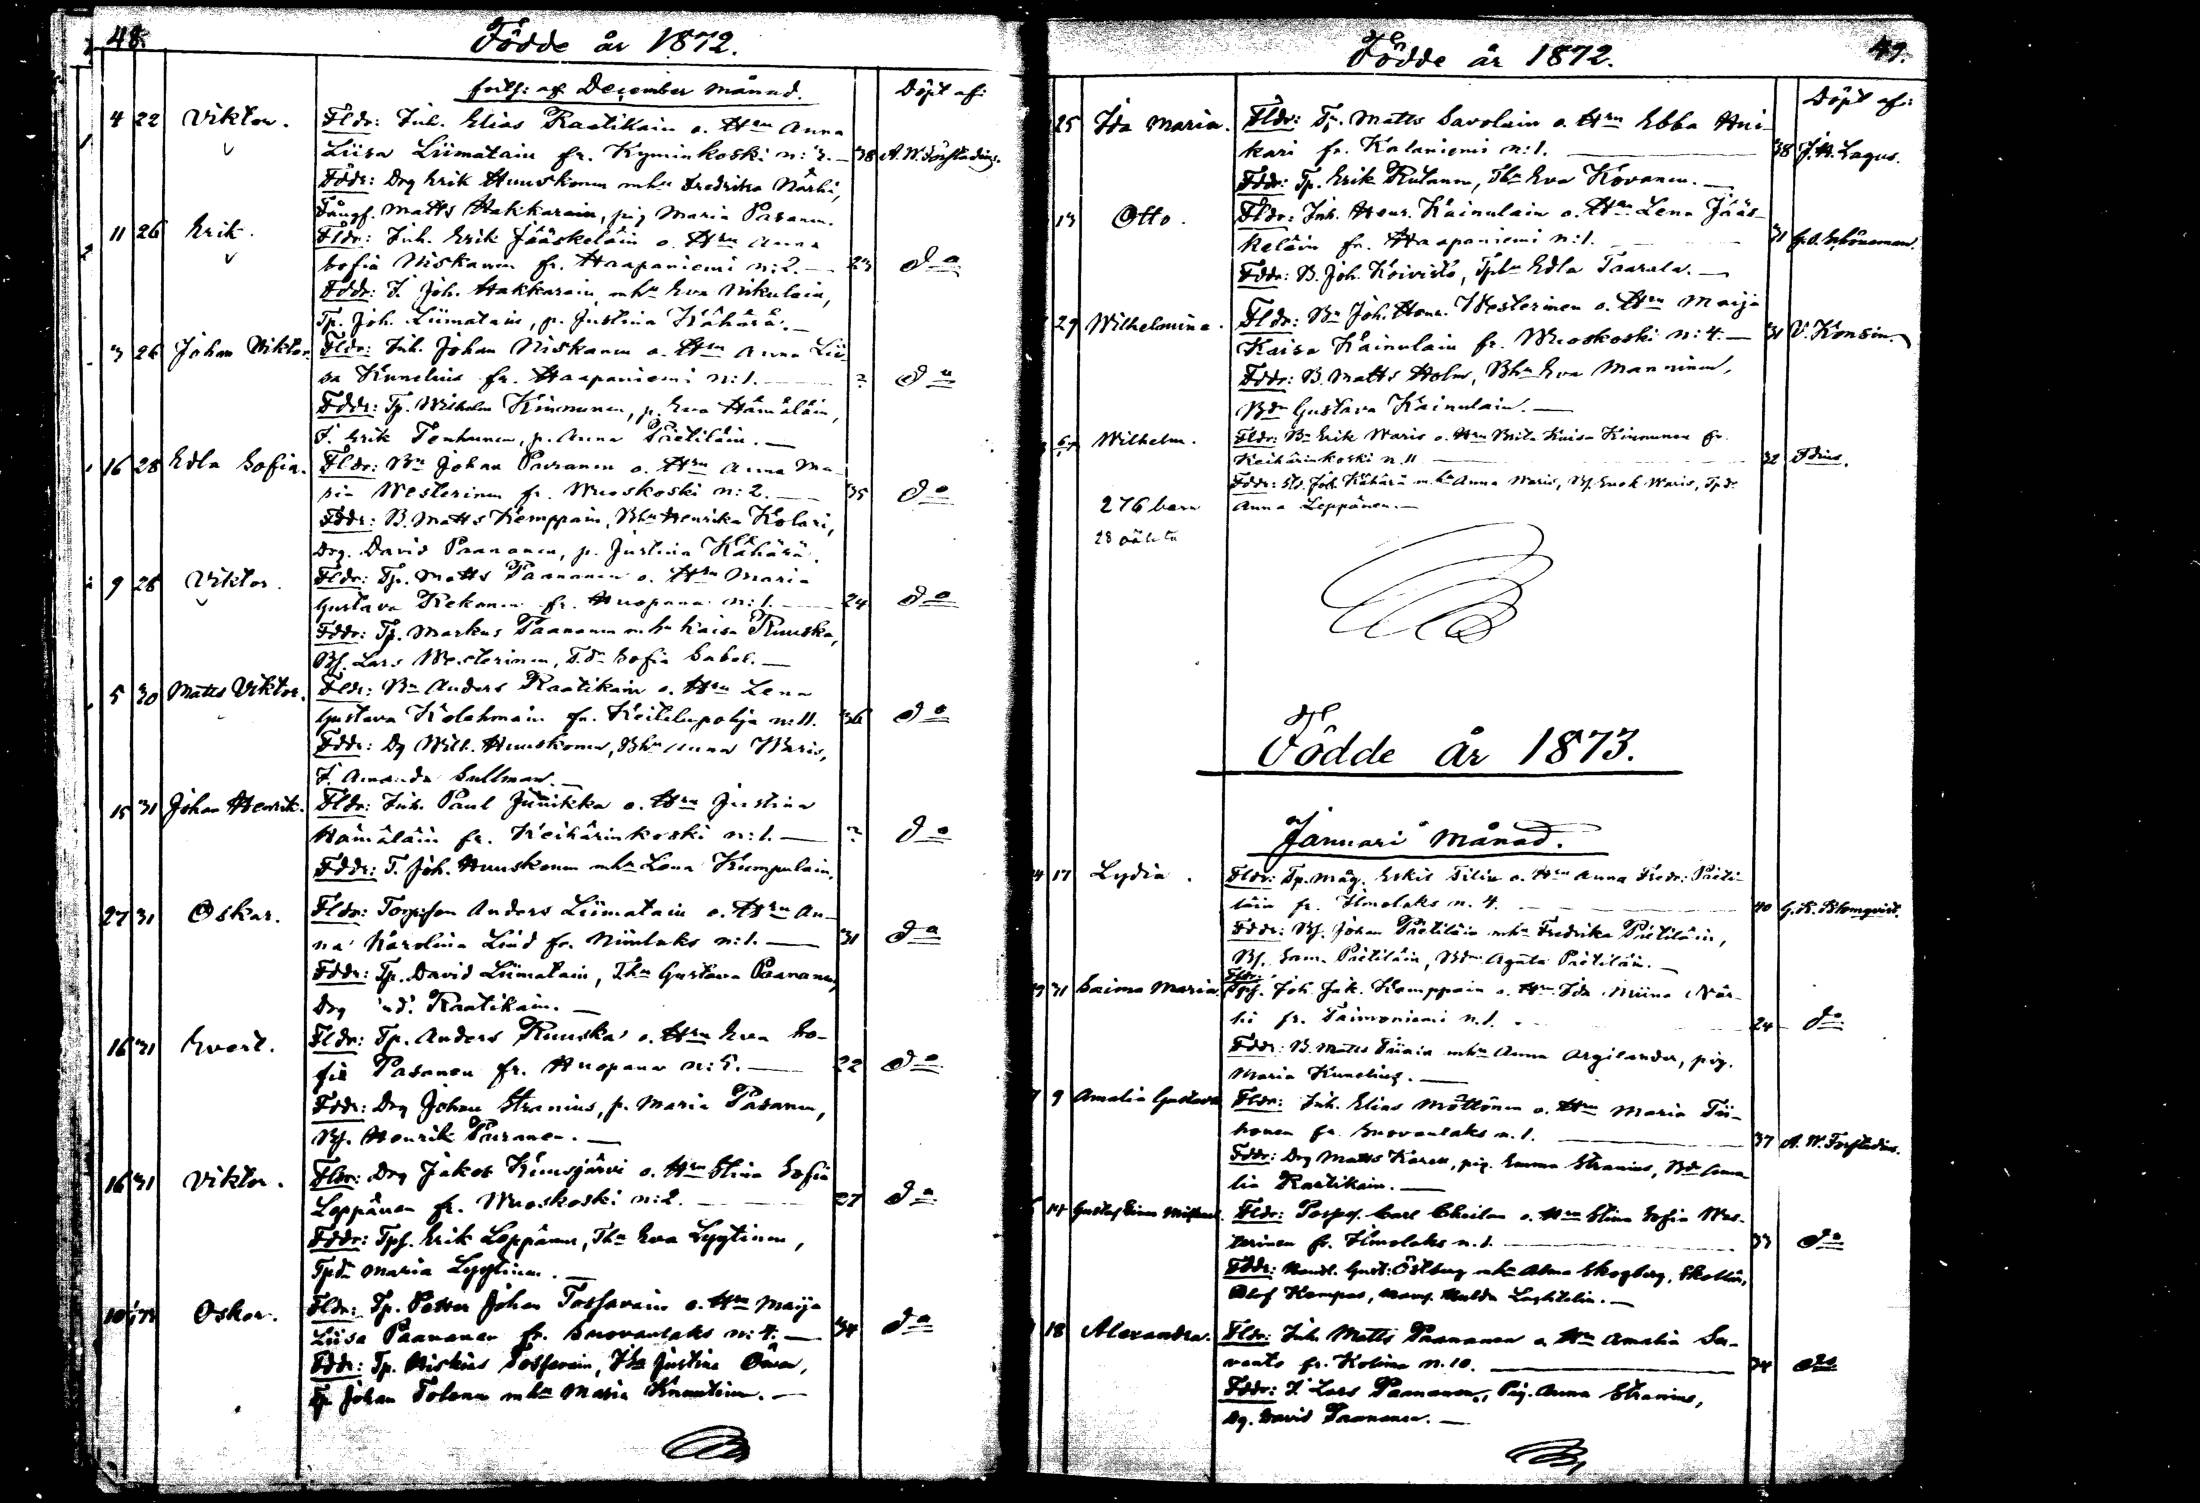 48.
Födde år 1872.
forts: af December månad.
Döpt af:
4 22 Viktor. Fldr: Inh. Elias Raatikain o. Hru Anna
Liisa Liimatain fr. Kyminkoski n:3. — 38 A. W. Forstadius.
Fddr: Drg Erik Huuskonen mhu Fredrika Närhi,
Matts Hakkarain, pig Maria Pasanen.
11 26 Erik. Fldr: Inh. Erik Jääskeläin o. Hru Anna
Sofia Niskanen fr. Haapaniemi n:2. — 23 do
Fddr: I. Joh. Hakkarain mhu Eva Nikulain,
Tp. Joh. Liimatain, p. Justina Kähärä. —
3 26 Johan Viktor. Fldr: Inh. Johan Niskanen o. Hru Anna Lii-
sa Kunelius fr. Haapaniemi n:1. — ? do
Fddr: Tp. Wilhelm Kinnunen, p. Eva Hämäläin,
I. Erik Tenhunen, p. Anna Pietiläin. —
16 28 Edla Sofia. Fldr: Bn Johan Puranen o. Hru Anna Ma-
ria Westerinen fr. Wuoskoski n:2. — 35 do
Fddr: B. Matts Kemppain, Bhu Henrika Kolari,
Drg. David Paananen, p. Justina Kähärä.
9 28 Viktor. Fldr: Tp. Matts Paananen o. Hru Maria
Gustava Kekonen fr. Huopana n:1. — 24 do
Fddr: Tp. Markus Paananen mhu Kaisa Ruuska,
Bs. Lars Westerinen, T.dr Sofia Sabel. —
5 30 Matts Viktor. Fldr: Bn Anders Raatikain o. Hru Lena
Gustava Kolehmain fr. Keitelepohja n:11. 36 do
Fddr: Dg Wilh. Huuskonen, Bhu Anna Waris,
I. Amanda Sallman. —
15 31 Johan Henrik. Fldr: Inh. Paul Junikka o. Hru Justina
Hämäläin fr. Keihärinkoski n:1. — ? do
Fddr: T. Joh. Huuskonen mhu Lena Kumpulain.
27 31 Oskar. Fldr: Torpson Anders Liimatain o. Hru An-
na Karolina Lind fr. Niinilaks n:1. — 31 do
Fddr: Tp. David Liimatain, Thu Gustava Paananen,
Drg Raatikain. —
16 31 Evert. Fldr: Tp. Anders Ruuska o. Hru Eva So-
fia Pasanen fr. Huopana n:5. — 22 do
Fddr: Drg Johan Stranius, p. Maria Pasanen,
Bs. Henrik Puranen. —
16 31 Viktor. Fldr: Drg Jakob Kuusjärvi o. Hru Stina Sofia
Leppänen fr. Wuoskoski n:2. — 27 do
Fddr: Tps. Erik Leppänen, Thu Eva Lyytinen,
Tpdr Maria Lyytinen. —
10 1/1 73 Oskar. Fldr: Tp. Petter Johan Tossavain o. Hru Maija
Liisa Paananen fr. Suovanlaks n:4. — 34 do
Fddr: Tp. Tossavain, Thu Justina
Tp. Johan Tolonen mhu Maria Knuutinen. —
49.
Födde år 1872.
Döpt af:
25 Ida Maria. Fldr: Tp. Matts Savolain o. Hru Ebba Hui-
kari fr. Kalaniemi n:1. — 38 J. H. Lagus.
Fddr: Tp. Erik Rutanen, Thu Eva Kovanen. —
13 Otto. Fldr: Inh. Henr. Kainulain o. Hru Lena Jääs-
keläin fr. Haapaniemi n:1. — 31
Fddr: B. Joh. Koivisto, Tphu Edla Taarala. —
29 Wilhelmina. Fldr: Bn Joh. Henr. Westerinen o. Hru Maija
Kaisa Kainulain fr. Wuoskoski n:4. — 31 V. Konsin.
Fddr: B. Matts Holm, Bhu Eva Manninen,
Bdr Gustava Kainulain. —
Wilhelm. Fldr: Bn Erik Waris o. Hru Brita Kaisa Kinnunen fr.
Keihärinkoski n. 11 — 32
Fddr: Joh. Kähärä mhu Anna Waris, Bs. Enok Waris, Tpdr
Anna Leppänen. —
276 barn
28 oäkta
Födde år 1873.
Januari Månad.
17 Lydia. Fldr: Tp. måg. Eskil Tilin o. Hru Anna Fredr: Pieti-
läin fr. Ilmolaks n. 4. — 40 G. R. Blomqvist.
Fddr: Bs. Johan Pietiläin mhu Fredrika Pietiläin,
Bs. Sam. Pietiläin, Bdr Agata Pietiläin. —
31 Saima Maria. Fldr: Tps. Joh. Jak. Kemppain o. Hru Ida Miina När-
hi fr. Taimoniemi n. 1. — 24 do
Fddr: B. Matts Piiain mhu Anna Argilander, pig.
Maria Kunelius. —
9 Amalia Gustava Fldr: Inh. Elias Möttönen o. Hru Maria Tii-
honen fr. Suovanlaks n. 1. — 37 A. W. Forstadius.
Fddr: Drg Matts Karen, pig. Emma Stranius, Bdr Ama-
lia Raatikain. —
14 Gustaf Einar Fldr: Torps. Carl o. Hru Stina Sofia Wes-
terinen fr. Ilmolaks n. 1. — 33 do
Fddr: Gust: Östberg mhu Alma Skogberg,
Olof Kempas, Hulda —
18 Alexandra. Fldr: Inh. Matts Paananen o. Hru Amalia Sa-
vanto fr. Kolima n. 10. — 34 do
Fddr: I. Lars Paananen, Pig. Anna Stranius,
Dg. David Paananen. —